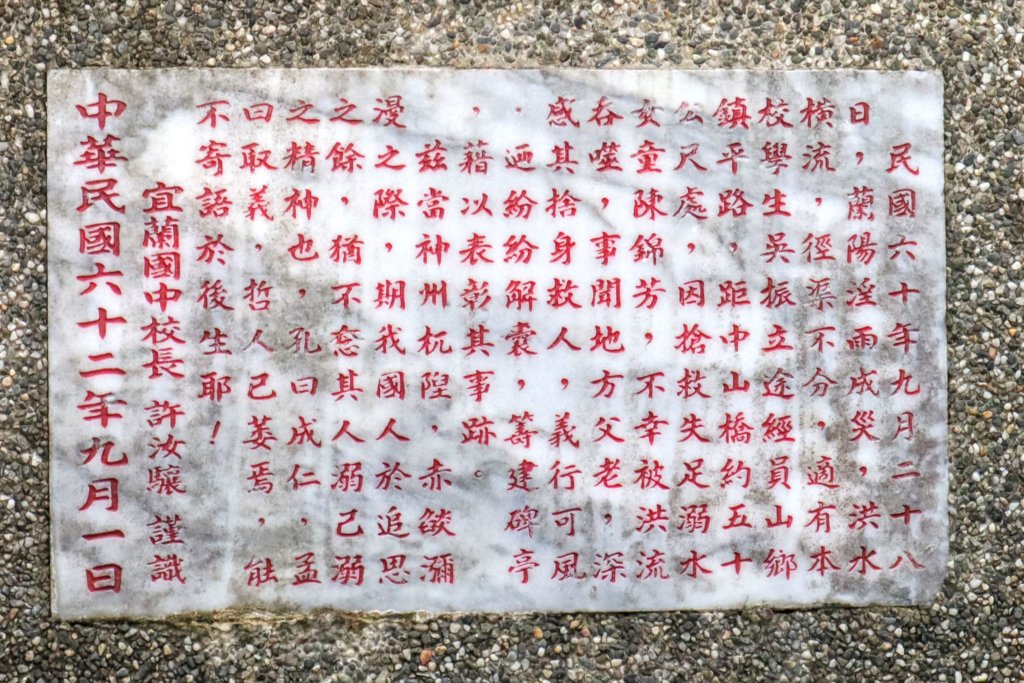 民國六十年九月二十八
日，蘭陽淫雨成災，洪水
橫流，徑渠不分，適有本
校學生吳振立途經員山鄉
鎮平路，距中山橋約五十
公尺處，因搶救失足溺水
女童陳錦芳，不幸被洪流
吞噬，事聞地方父老，深
感其捨身救人，義行可風
．迺紛紛解囊，籌建碑亭
，藉以表彰其事跡。
茲當神州杌隉，赤燄瀰
漫之際，期我國人於追思
之餘，猶不忘其人溺己溺
之精神也，孔曰成仁，孟
曰取義，哲人已萎焉，能
不寄語於後生耶！
宜蘭國中校長 許汝驤 謹識
中華民國六十二年九月一日